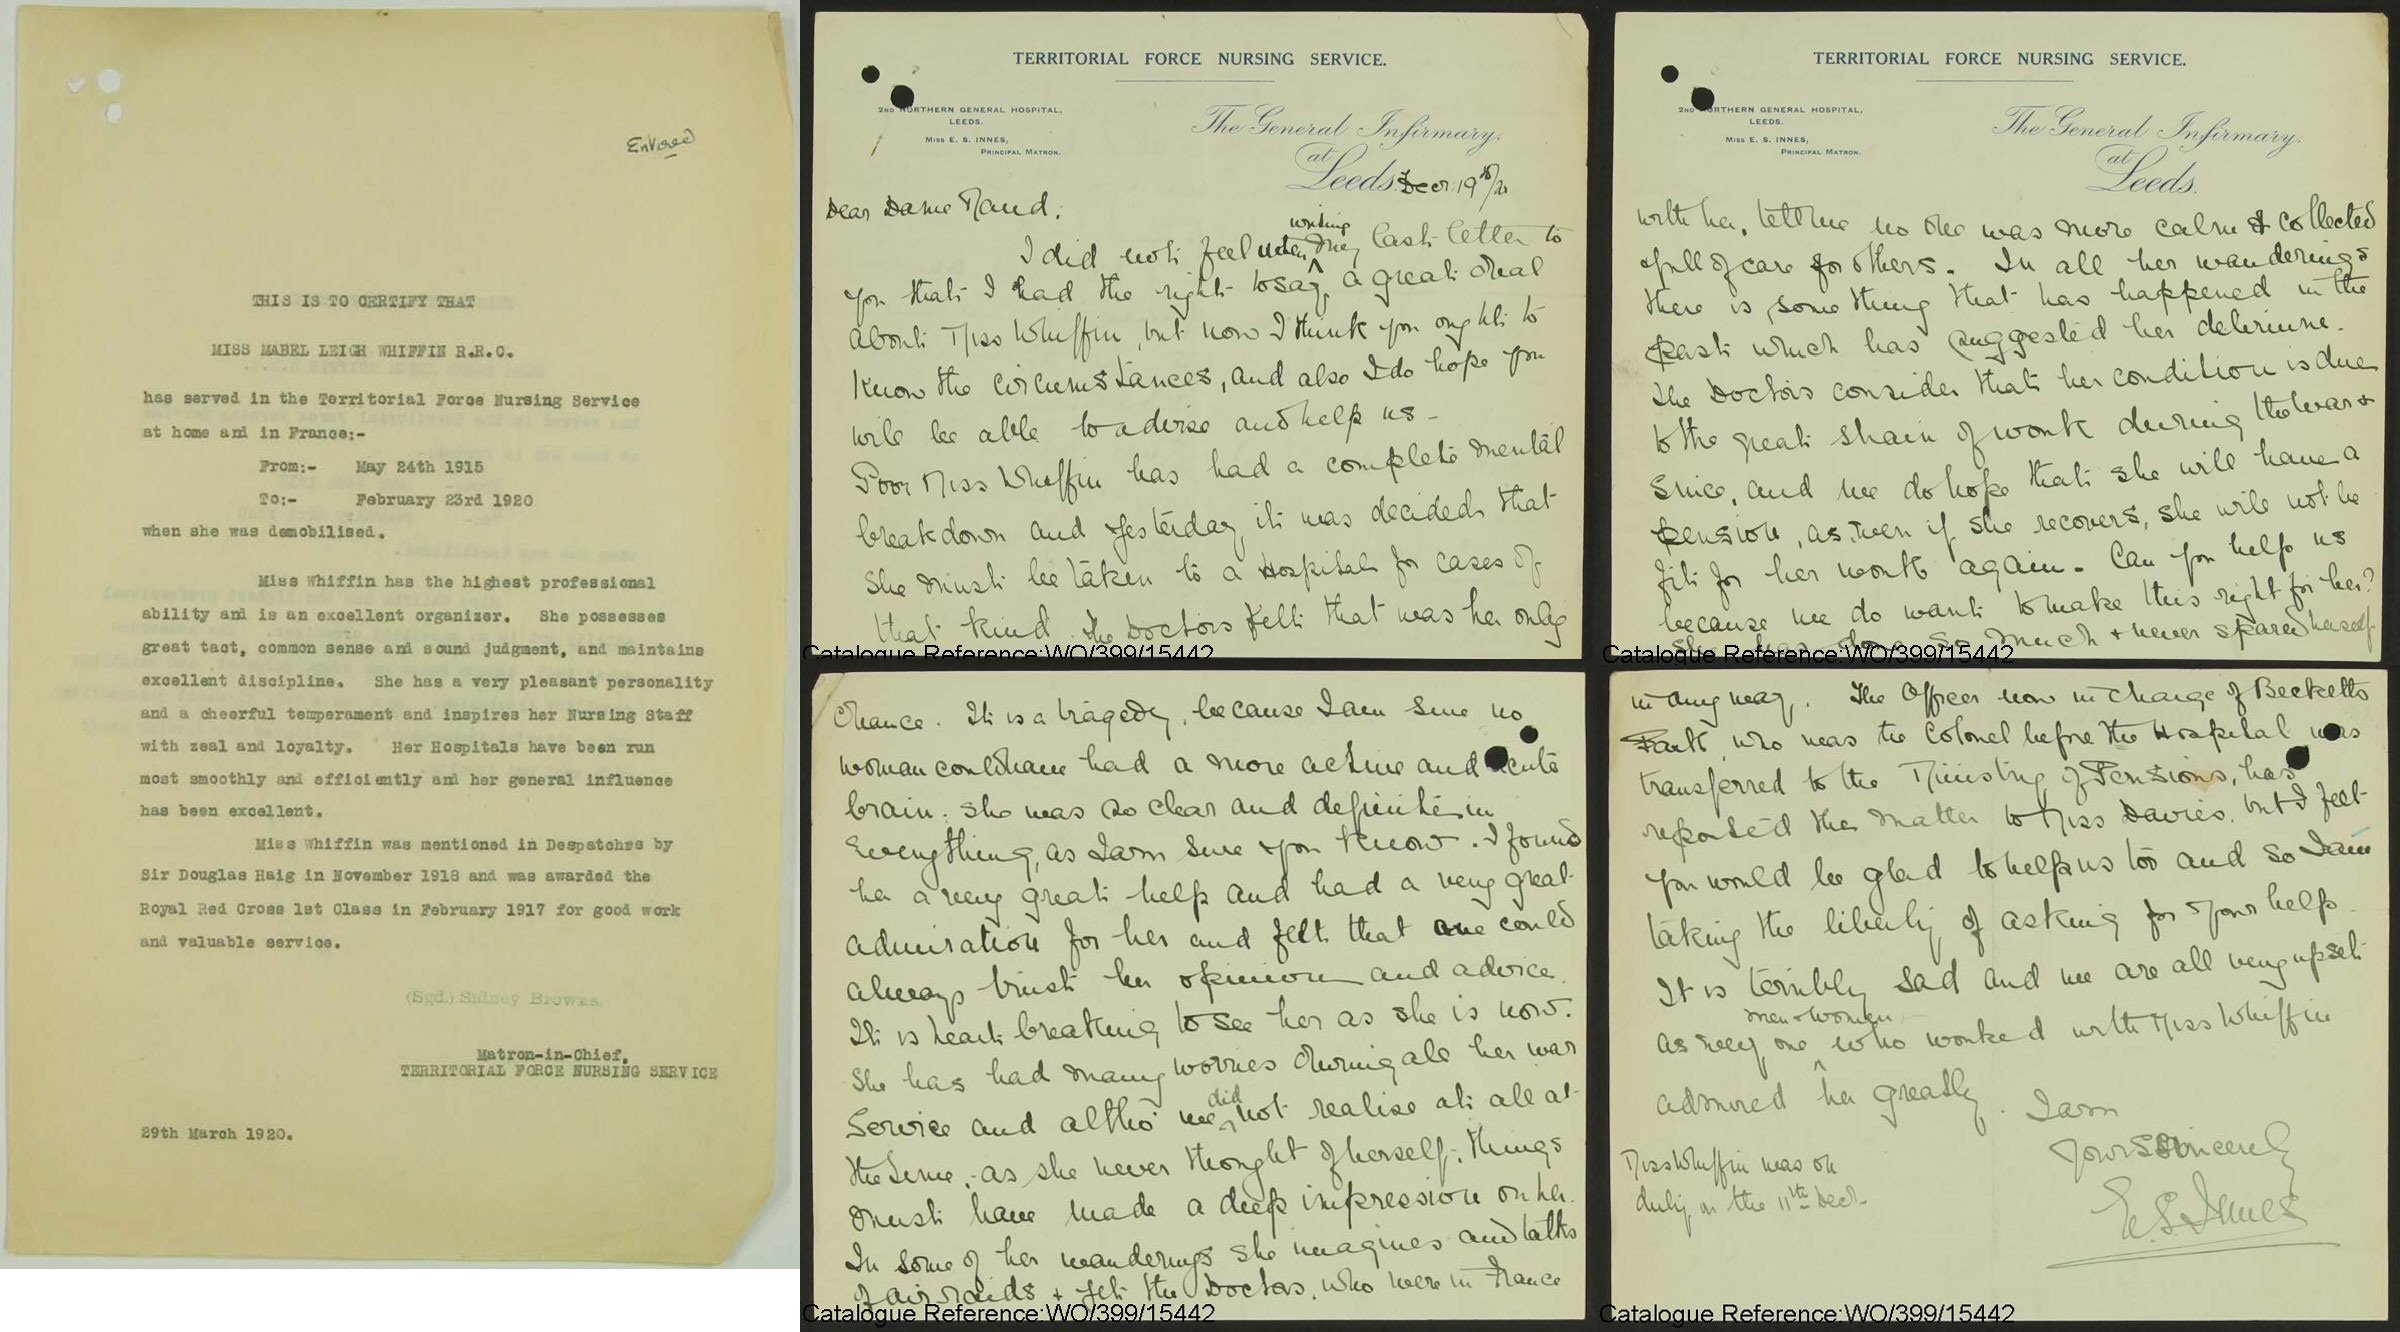 Entered
THIS IS TO CERTIFY THAT
MISS MABEL LEIGH WHIFFIN R.R.C.
has served in the Territorial Force Nursing Service
at home and in France:-
From:- May 24th 1915
To:- February 23rd 1920
when she was demobilised.
Miss Whiffin has the highest professional
ability and is an excellent organizer. She possesses
great tact, common sense and sound judgment, and maintains
excellent discipline. She has a very pleasant personality
and a cheerful temperament and inspires her Nursing Staff
with zeal and loyalty. Her Hospitals have been run
most smoothly and efficiently and her general influence
has been excellent.
Miss Whiffin was mentioned in Despatches by
Sir Douglas Haig in November 1918 and was awarded the
Royal Red Cross 1st Class in February 1917 for good work
and valuable service.
(Sgd.) Sidney Browne.
Matron-in-Chief,
TERRITORIAL FORCE NURSING SERVICE
29th March 1920.
TERRITORIAL FORCE NURSING SERVICE.
2ND NORTHERN GENERAL HOSPITAL,
LEEDS.
MISS E. S. INNES,
PRINCIPAL MATRON.
The General Infirmary,
at
Leeds. Decr. 19
Dear Dame Maud,
writing
I did not feel when my last letter to
you that I had the right to say a great deal
about Miss Whiffin, but now I think you ought to
know the circumstances, and also I do hope you
will be able to advise and help us -
Poor Miss Whiffin has had a complete mental
breakdown and yesterday it was decided that
she must be taken to a Hospital for cases of
that kind. The Doctors felt that was her only
Catalogue Reference:WO/399/15442
chance. It is a tragedy, because I am sure no
woman could have had a more active and acute
brain: she was so clear and definite in
everything, as I am sure you know. I found
her a very great help and had a very great
admiration for her and felt that one could
always trust her opinion and advice.
It is heart breaking to see her as she is now.
She has had many worries during all her war
did
Service and altho' we not realise it at all at
the time, as she never thought of herself, things
must have made a deep impression on her.
In some of her wanderings she imagines and talks
of air raids & yet the Doctors, who were in France
Catalogue Reference:WO/399/15442
TERRITORIAL FORCE NURSING SERVICE.
2ND NORTHERN GENERAL HOSPITAL,
LEEDS.
MISS E. S. INNES,
PRINCIPAL MATRON.
The General Infirmary,
at
Leeds.
with her, tell me no one was more calm & collected
& full of care for others. In all her wanderings
there is something that has happened in the
past which has suggested her delirium.
The Doctors consider that her condition is due
to the great strain of work during the war &
since, and we do hope that she will have a
pension, as, even if she recovers, she will not be
fit for her work again. Can you help us
because we do want to make this right for her?
She has done so much & never spared herself
Catalogue Reference:WO/399/15442
in any way. The Officer now in charge of Becketts
Park, who was the Colonel before the Hospital was
transferred to the Ministry of Pensions, has
reported the matter to Miss Davies, but I felt
you would be glad to help us too and so I am
taking the liberty of asking for your help.
It is terribly sad and we are all very upset
men & women
as every one who worked with Miss Whiffin
admired her greatly. I am
Yours sincerely
E. S. Innes
Miss Whiffin was on
duty on the 11th Decr.
Catalogue Reference:WO/399/15442